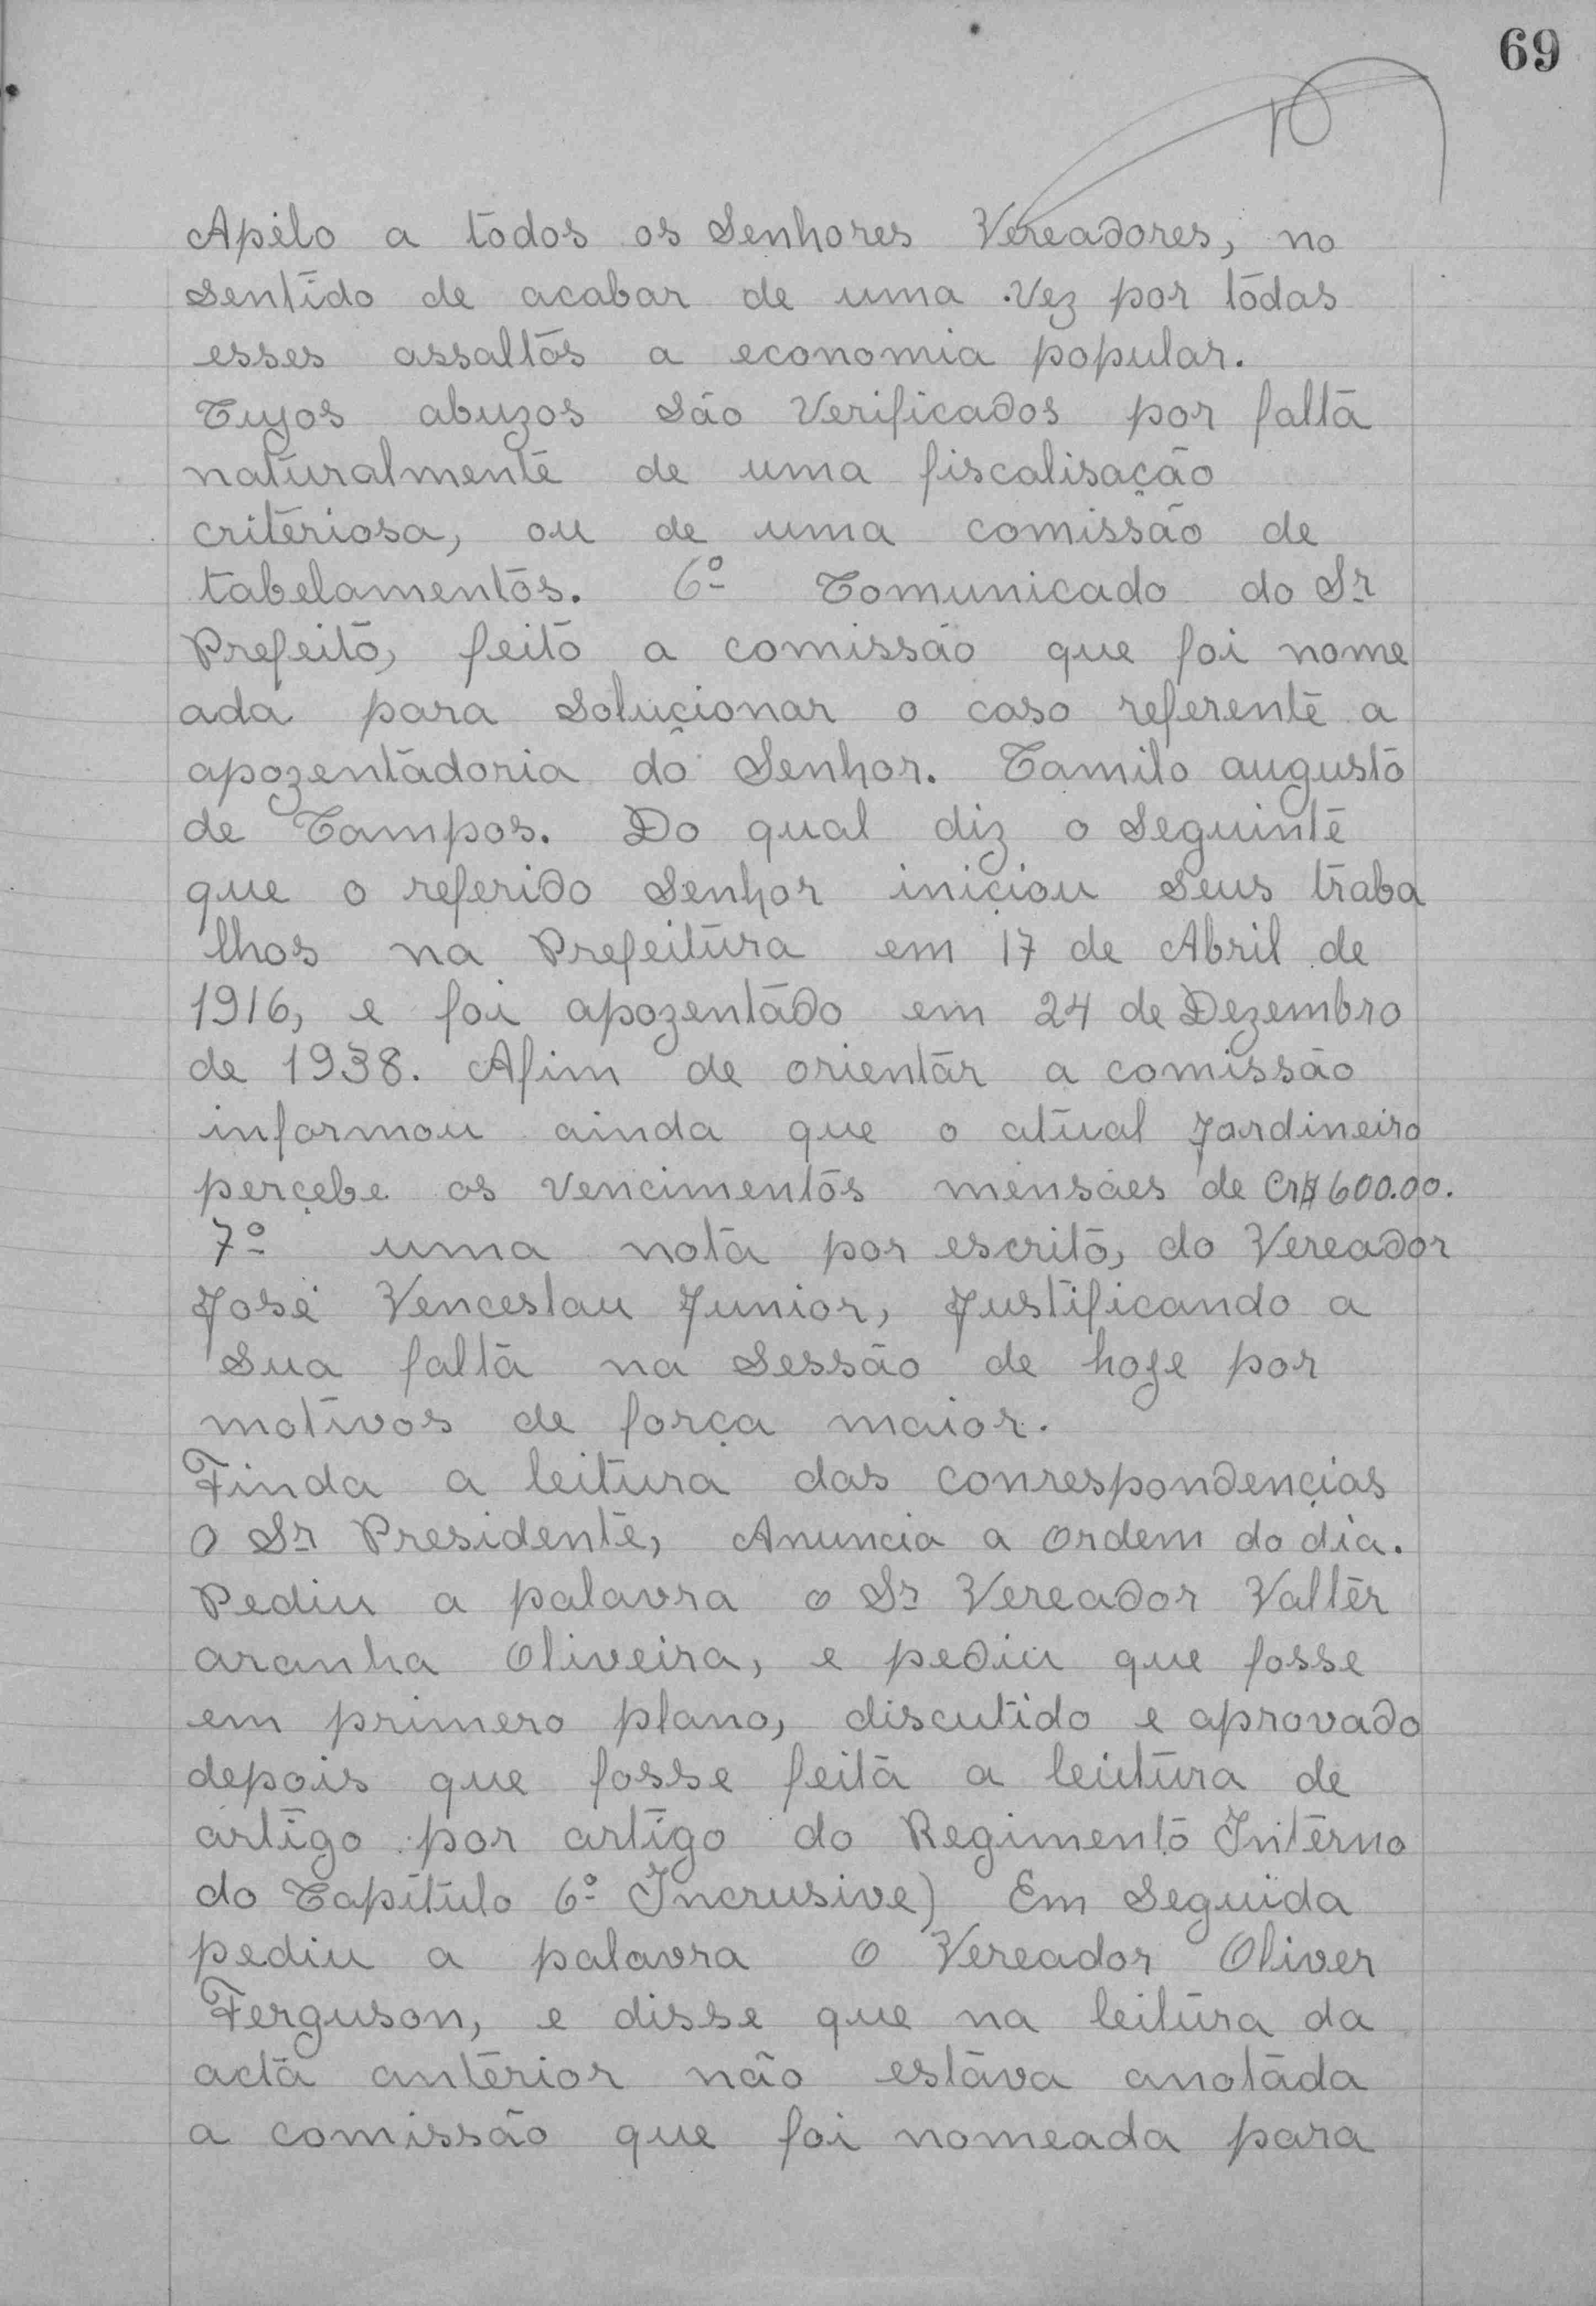 69
Apélo a todos os Senhores Vereadores, no
sentido de acabar de uma Vez por todas
esses assaltos a economia popular.
Cujos abuzos são Verificados por falta
naturalmente de uma fiscalisação
criteriosa, ou de uma comissão de
tabelamentos. 6º Comunicado do Sr
Prefeito, feito a comissão que foi nome
ada para solucionar o caso referente a
apozentadoria do Senhor. Camilo augusto
de Campos. Do qual diz o seguinte
que o referido Senhor iniciou seus traba
lhos na Prefeitura em 17 de Abril de
1916, e foi apozentado em 24 de Dezembro
de 1938. Afim de orientar a comissão
informou ainda que o atual Jardineiro
perçebe os vencimentos mensáes de Cr$ 600.00.
7º uma nota por escrito, do Vereador
José Venceslau Junior, Justificando a
sua falta na Sessão de hoje por
motivos de força maior.
Finda a leitura das conrespondençias
O Sr Presidente, Anuncia a ordem do dia.
Pediu a palavra o Sr Vereador Valter
aranha Oliveira, e pediu que fosse
em primero plano, discutido e aprovado
depois que fosse feita a leiutura de
artigo por artigo do Regimento Interno
do Capítulo 6º Incrusive) Em Seguida
pediu a palavra O Vereador Oliver
Ferguson, e disse que na leitura da
acta anterior não estava anotada
a comissão que foi nomeada para